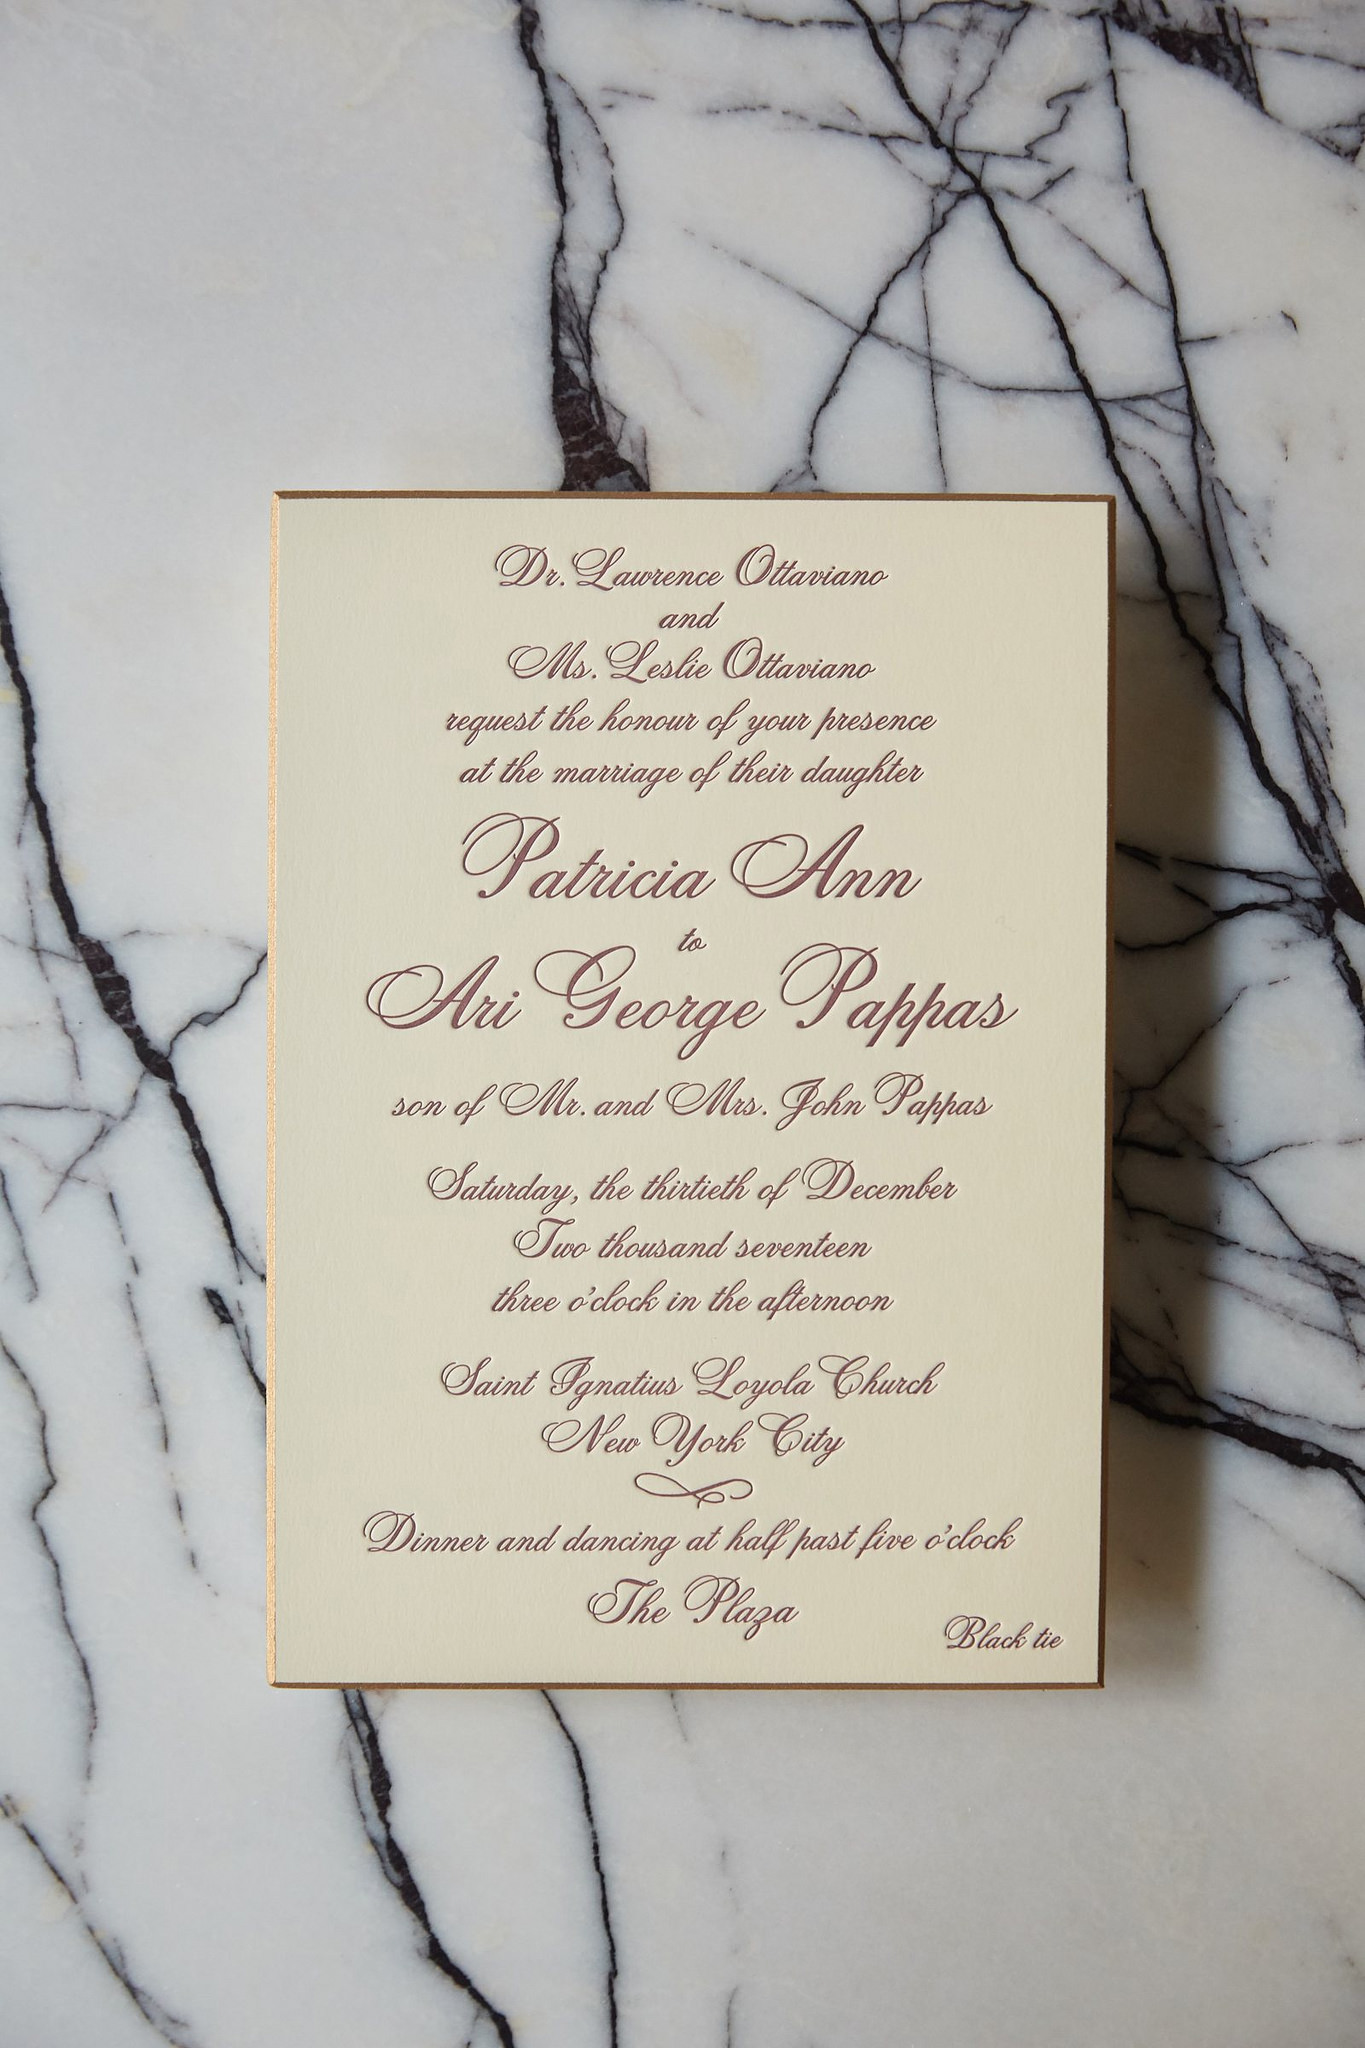 Dr. Lawrence Ottaviano
and
Ms. Leslie Ottaviano
request the honour of your presence
at the marriage of their daughter
Patricia Ann
to
Ari George Pappas
son of Mr. and Mrs. John Pappas
Saturday, the thirtieth of December
Two thousand seventeen
three o'clock in the afternoon
Saint Ignatius Loyola Church
New York City
Dinner and dancing at half past five o'clock
The Plaza
Black tie